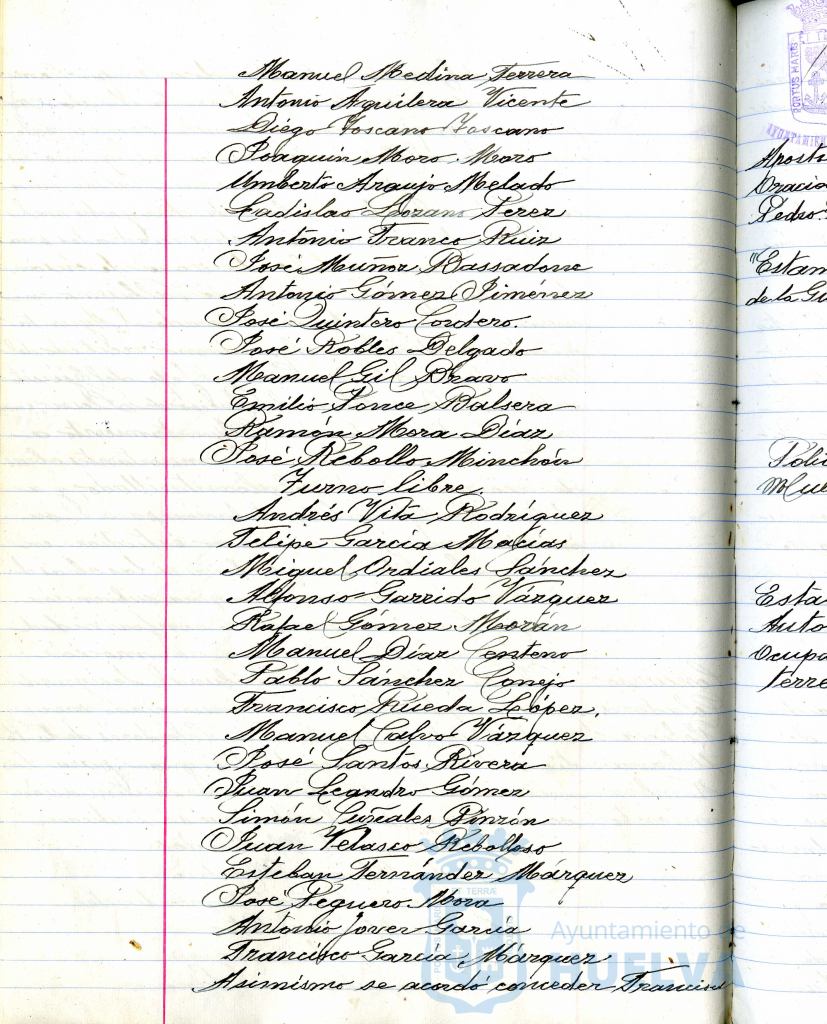 Manuel Medina Ferrera
Antonio Aguilera Vicente
Diego Toscano Toscano
Joaquín Moro Moro
Umberto Araujo Melado
Ladislao Lozano Perez
Antonio Franco Ruiz
José Muñoz Bassadone
Antonio Gómez Jiménez
José Quintero Cordero.
José Robles Delgado
Manuel Gil Bravo
Emilio Ponce Balsera
Ramón Mora Díaz
José Rebollo Minchón
Turno libre.
Andrés Vita Rodríguez
Felipe García Macías
Miguel Ordiales Sánchez
Alfonso Garrido Vázquez
Rafael Gómez Morán
Manuel Díaz Centeno
Pablo Sánchez Conejo
Francisco Rueda López.
Manuel Calvo Vázquez
José Santos Rivera
Juan Leandro Gómez
Simón Pinzón
Juan Velasco Rebolloso
Esteban Fernández Márquez
José Peguero Mora
Antonio Jover García
Francisco García Márquez
Asimismo se acordó conceder
Ayuntamiento de
HUELVA
PORTUS MARIS
Pedro
"Estam
de la Gu
Esta
Auto
Ocupa
terre